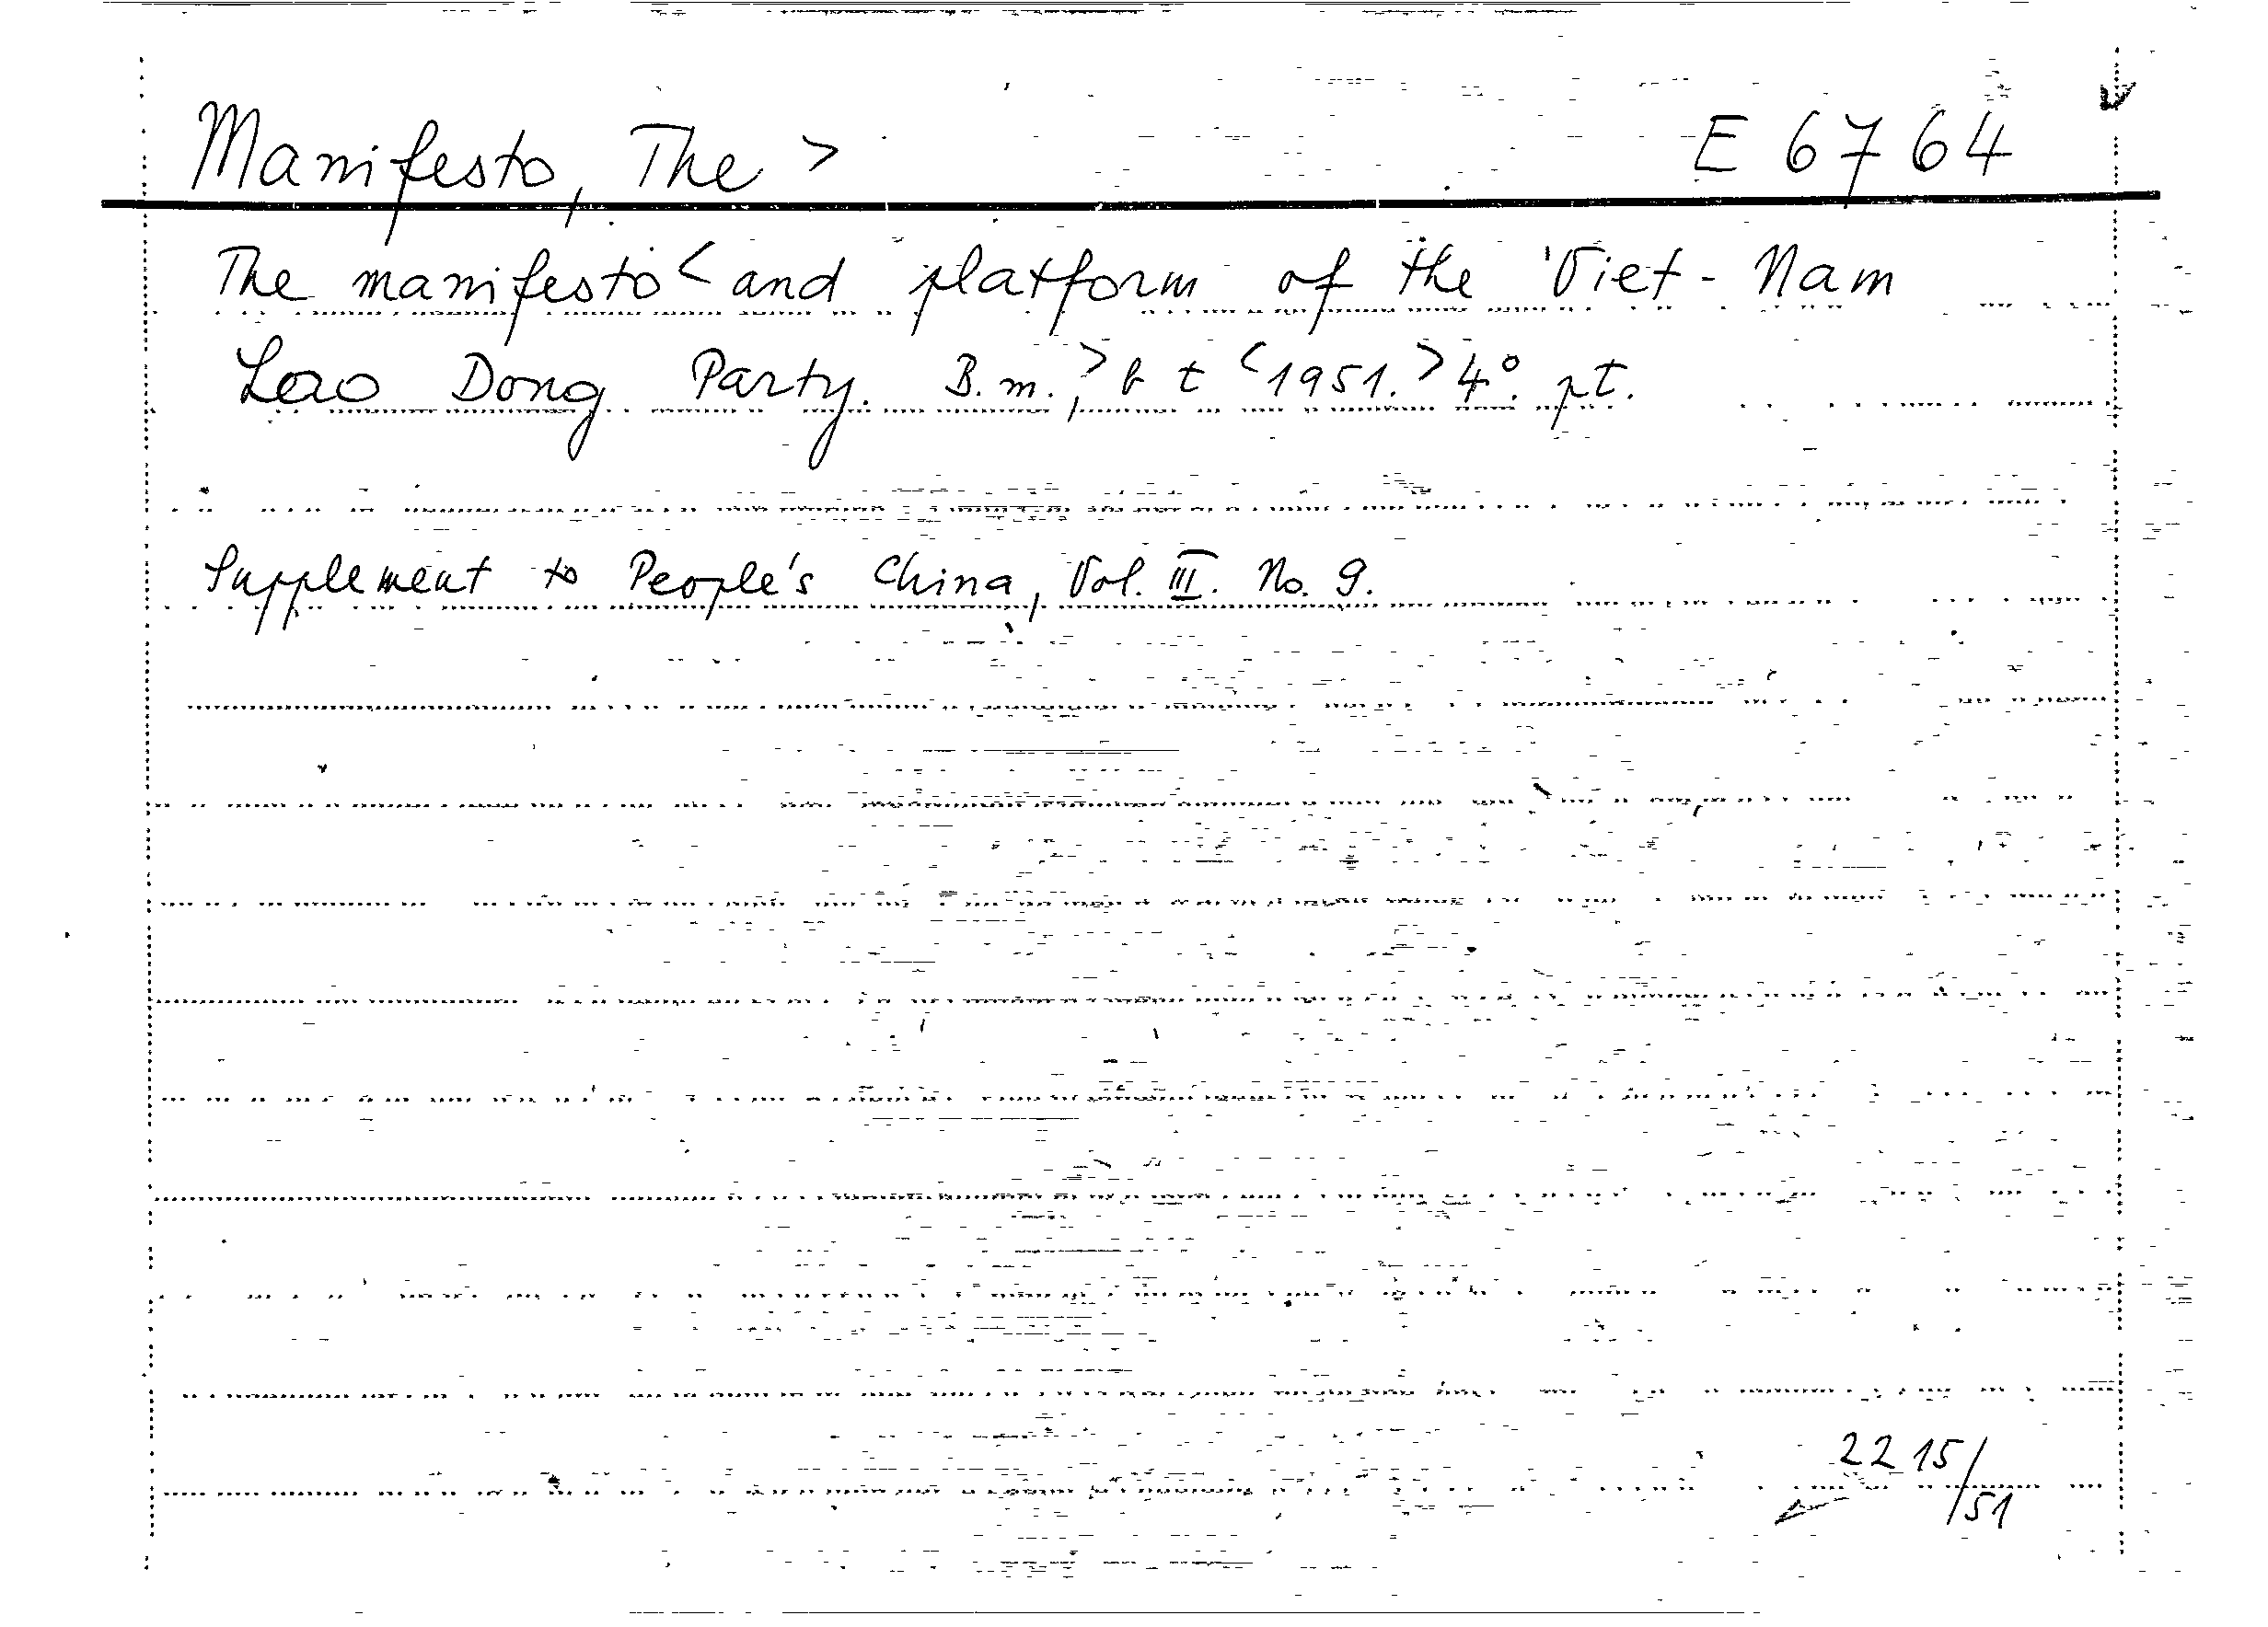 Manifesto, The > E 6764
The manifesto < and platform of the Viet-Nam
Lao Dong Party. B.m., > b t < 1951. > 4°. pt.
Supplement to People's China, Vol. III. No. 9.
2215/51